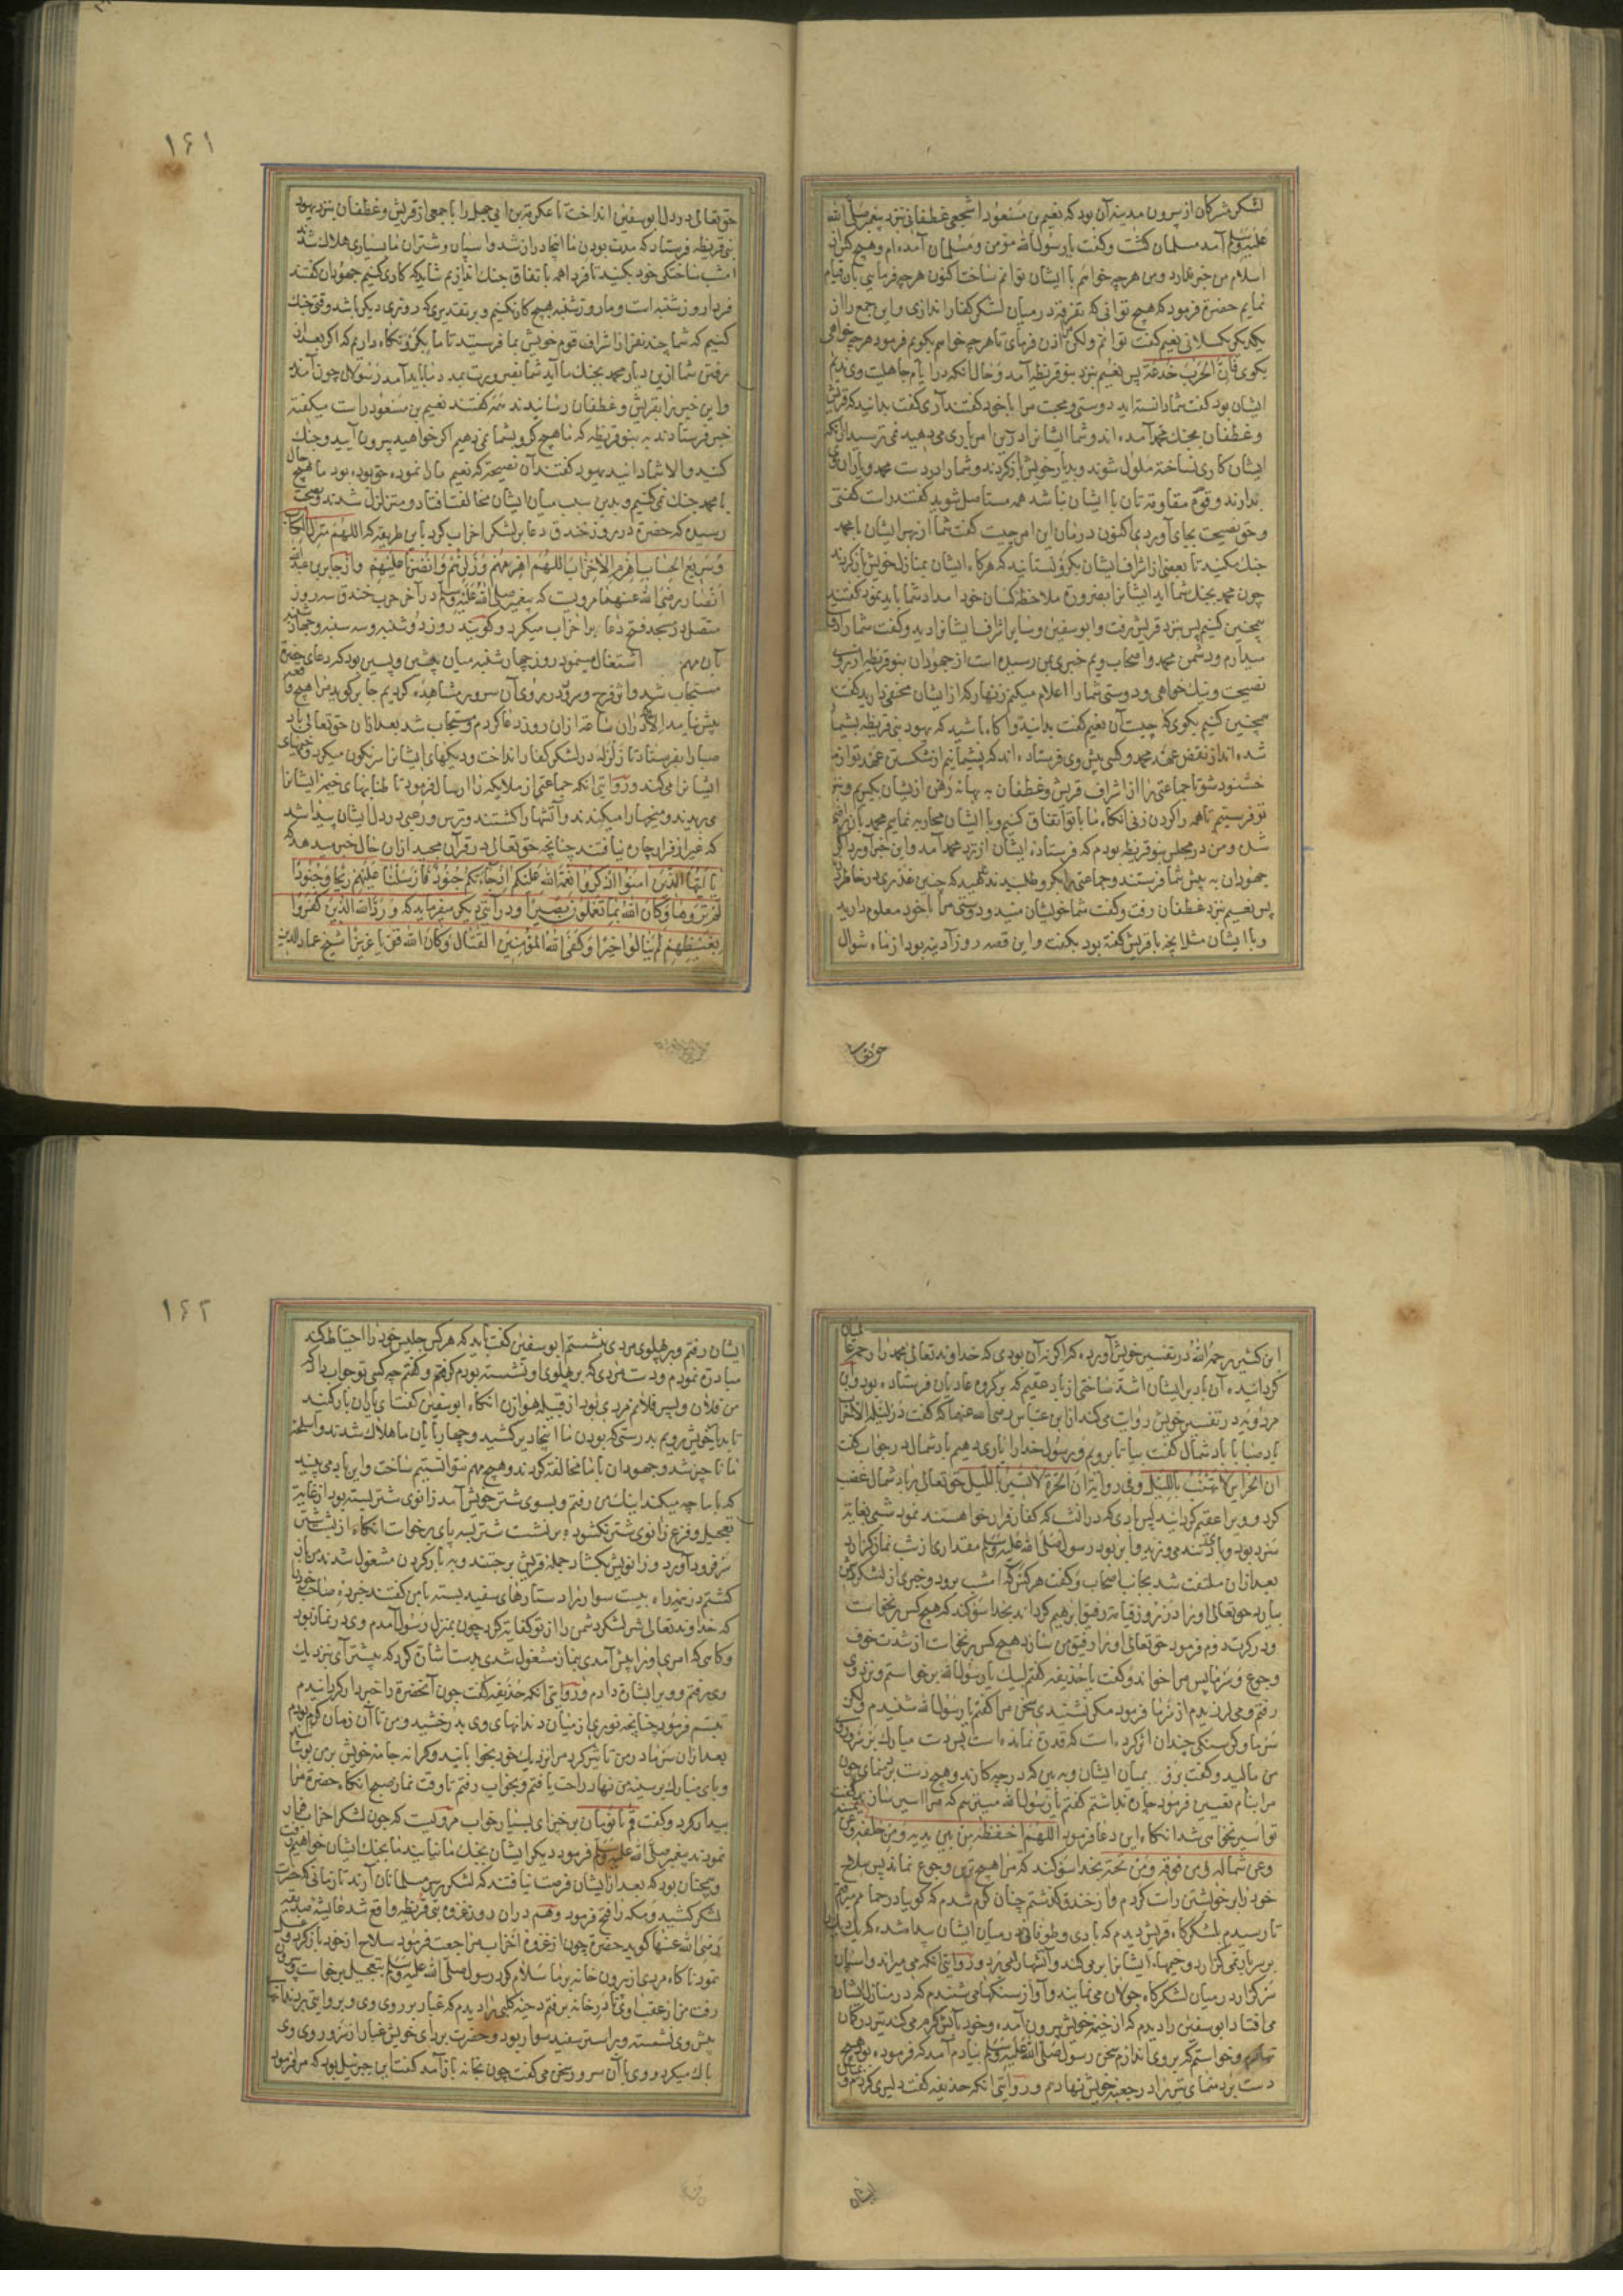 لشکر مشرکان از بیرون مدینه آن بود که نعیم بن مسعود اشجعی غطفانی نزد پیغمبر صلی الله
علیه وسلم آمد مسلمان کشت وکفت یا رسول الله مؤمن ومسلمان آمده ام وهیچ کس از
اسلام من خبر ندارد ومن هرچه خواهم با ایشان توانم ساخت اکنون هرچه فرمایی بآن قیام
نمایم حضرة فرمود که هیچ توانی که تفرقه در میان لشکر کفار اندازی واین جمع را از
یکدیکر بکسلانی نعیم کفت توانم ولکن اذن فرمای تا هرچه خواهم بکویم فرمود هرچه خواهی
بکوی فان الحرب خدعة پس نعیم نزد بنو قریظه آمد وحال آنکه در ایام جاهلیت وی ندیم
ایشان بود کفت شما دانسته اید دوستی ومحبت مرا با خود کفتند آری کفت بدانید که قریش
وغطفان بجنك محمد آمده اند وشما ایشانرا درین امر یاری می دهید نمی ترسید از آنکه
ایشان کاری نساخته ملول شوند وبدیار خویش باز کردند وشما را در دست محمد ویاران وی
بذارند وقوة مقاومة تان با ایشان نباشد همه مستاصل شوید کفتند راست کفتی
وحق نصیحت بجای آوردی اکنون درمان این امر چیست کفت شما از بهر ایشان با محمد
جنك مکنید تا بعضی از اشراف ایشان بکرو نستانید که هرکاه ایشان بمنازل خویش باز کردند
چون محمد بجنك شما آید ایشانرا بضرورة ملاحظه کسان خود امداد شما باید نمود کفتند
همچنین کنیم پس نزد قریش رفت وابوسفین وسایر اشراف ایشانرا دید وکفت شما را دوست
میدارم ودشمن محمد واصحاب ویم خبری بمن رسیده است از جهودان بنو قریظه از روی
نصیحت ونیك خواهی ودوستی شما را اعلام میکنم زنهار که از ایشان مخفی دارید کفتند
همچنین کنیم بکوی که چیست آن نعیم کفت بدانید وآکاه باشید که یهود بنی قریظه پشیمان
شده اند از نقض عهد محمد وکسی پیش وی فرستاده اند که پشیمانیم از شکستن عهد تو آیا
خشنود شوی تا جماعتی را از اشراف قریش وغطفان به بهانه رهن از یشان بکیریم ونزد
تو فرستیم تا همه را کردن زنی آنکاه ما با تو اتفاق کنیم وبا ایشان محاربه نمایم محمد بآن راضی
شد ومن در مجلس بنو قریظه بودم که فرستاده ایشان از نزد محمد آمد واین خبر آورد اکر
جهودان به پیش شما فرستند وجماعتی را بکرو طلبیدند ندهید که چنین غدری در خاطر دارند
پس نعیم نزد غطفان رفت وکفت شما خویشان منید ودوستی مرا با خود معلوم دارید
وبا ایشان مثل آنچه با قریش کفته بود بکفت واین قصه روز آدینه بود از ماه شوال
حق تعالی
۱۶۱
حق تعالی در دل ابوسفین انداخت تا عکرمة بن ابی جهل را با جمعی از قریش وغطفان بنزد یهود
بنی قریظه فرستاد که مدت بودن ما اینجا دراز شد واسپان وشتران ما بسیاری هلاك شدند
امشب ساختکی خود بکنید تا فردا همه باتفاق جنك اندازیم شاید که کاری کنیم جهودان کفتند
فردا روز شنبه است وما روز شنبه هیچ کار نکنیم وبر تقدیری که روزی دیکر باشد وقتی جنك
کنیم که شما چند نفر از اشراف قوم خویش بما فرستید تا ما بکرو نکاه داریم که اکر بعد از
رفتن شما ازین دیار محمد بجنك ما آید شما را بضرورت بمدد ما باید آمد رسولان چون آمدند
واین خبر را بقریش وغطفان رسانیدند همه کفتند نعیم بن مسعود راست میکفته
خبر فرستادند به بنو قریظه که ما هیچ کرو بشما نمی دهیم اکر خواهید بیرون آیید وجنك
کنید والا شما دانید یهود کفتند آن نصیحة که نعیم ما را نموده حق بوده بود ما هیچ حال
با محمد جنك نمی کنیم وبدین سبب میان ایشان مخالفت افتاد ومتزلزل شدند وبصحت
رسیده که حضرة در روز خندق دعا بر لشکر احزاب کرد باین طریقه که اللهم منزل الکتاب
وسریع الحساب اهزم الاحزاب اللهم اهزمهم وزلزلهم وانصرنا علیهم واز جابر بن عبد الله
انصار رضی الله عنهما مرویست که پیغمبر صلی الله علیه وسلم در آخر حرب خندق سه روز
متصل در مسجد فتح دعا بر احزاب میکرد وکویند روز دوشنبه وسه شنبه وچهارشنبه
بآن مهم اشتغال مینمود روز چهارشنبه میان پیشین وپسین بود که دعای حضرة
مستجاب شد واثر فرح وسرور در روی آن سرور مشاهده کردیم جابر کوید مرا هیچ واقعه
پیش نیامد الا که در آن ساعة از ان روز دعا کردم ومستجاب شد بعد از ان حق تعالی باد
صبا را بفرستاد تا زلزله در لشکر کفار انداخت ودیکهای ایشانرا سرنکون میکرد وخیمهای
ایشانرا می کند وروایتی آنکه جماعتی از ملایکه را ارسال فرمود تا طنابهای خیمه ایشانرا
می بریدند ومیخها را میکندند وآتشها را کشتند وترس ورعبی در دل ایشان پیدا شد
که غیر از فرار چاره نیافتند چنانچه حق تعالی در قرآن مجید از ان حال خبر میدهد که
یا ایها الذین امنوا اذکروا نعمة الله علیکم اذ جاءتکم جنود فارسلنا علیهم ریحا وجنودا
لم تروها وکان الله بما تعملون بصیرا ودر آیتی دیکر میفرماید که ورد الله الذین کفروا
بغیظهم لم ینالوا خیرا وکفی الله المؤمنین القتال وکان الله قویا عزیزا شیخ عماد الدین
ابن کثیر رحمه الله در تفسیر خویش آورده که اکر نه آن بودی که خداوند تعالی محمد را رحمة عالمیان
کردانیده آن باد بر ایشان اشد ساختی از باد عقیم که بر کروه عادیان فرستاده بود وابن
مردویه در تفسیر خویش روایت می کند از ابن عباس رضی الله عنهما که کفت در لیلة الاحزاب
باد صبا با باد شمال کفت بیا تا برویم ورسول خدا را یاری دهیم باد شمال در جواب کفت
ان الحرائر لا تهب باللیل وفی روایة ان الحرة لا تسیر باللیل حق تعالی بر باد شمال غضب
کرد وویرا عقیم کردانید پس بادی که در آن شب که کفار فرار خواستند نمود شبی بغایة
سرد بود وبادی تند می وزید وآن بود رسول صلی الله علیه وسلم مقداری از شب نماز کزارد
بعد از ان ملتفت شد بجانب اصحاب وکفت هر کس که امشب برود وخبری از لشکر دشمن
بیارد حق تعالی او را در روز قیامة رفیق ابرهیم کرداند بخدا سوکند که هیچ کس برنخاست
ودر کرت دوم فرمود حق تعالی او را رفیق من سازد هیچ کس برنخاست از شدت خوف
وجوع وسرما پس مرا خواند وکفت یا حذیفه کفتم لبیك یا رسول الله برخاستم ونزد وی
رفتم ومی لرزیدم از سرما فرمود مکر نشنیدی سخن مرا کفتم یا رسول الله شنیدم ولکن
سرما وکرسنکی چندان اثر کرده است که قدرة نمانده است پس دست مبارك بر سر وروی
من مالید وکفت برو بمیان ایشان وبه بین که در چه کارند وهیچ دست برد منمای چون
مرا بنام تعیین فرمود چاره نداشتم کفتم یا رسول الله میترسم که مرا اسیر سازند کفت
تو اسیر نخواهی شد آنکاه این دعا فرمود اللهم احفظه من بین یدیه ومن خلفه وعن یمینه
وعن شماله ومن فوقه ومن تحته بخدا سوکند که مرا هیچ ترس وجوع نماند پس سلاح
خود را بر خویشتن راست کردم واز خندق کذشتم چنان کرم شدم که کویا در حمام میرفتم
تا رسیدم بلشکرکاه قریش دیدم که بادی وطوفانی در میان ایشان پیدا شده که یك دیك
بر سر بار نمی کزارد وخیمهاء ایشانرا بر می کند وآتشها را می برد وروایتی آنکه می میراند واسپان
سر کزارد در میان لشکرکاه جولان می نمایند وآواز سنکها می شنیدم که در منازل ایشان
می افتاد ابوسفین را دیدم که از خیمه خویش بیرون آمده وخود را بآتش کرم می کند تیر در کمان
نهادم وخواستم که بر وی اندازم سخن رسول صلی الله علیه وسلم بیادم آمد که فرموده بود هیچ
دست برد منمای تیر را در جعبه خویش نهادم وروایتی آنکه حذیفه کفت دلیری کردم ودر میان
ایشان
۱۶۲
ایشان رفتم وبر پهلوی مردی بنشستم ابوسفین کفت باید که هر کس جلیس خود را احتیاط کند
مبادرة نمودم ودست مردی که بر پهلوی او نشسته بودم کرفتم وکفتم چه کسی تو جواب داد که
من فلان وپسر فلانم مردی بود از قبیله هوازن آنکاه ابوسفین کفت ای یاران بار کنید
تا بدیار خویش رویم بدرستی که بودن ما اینجا دیر کشید وچهارپایان ما هلاك شدند واسلحه
ما ناچیز شد وجهودان با ما مخالفة کردند وهیچ مهم نتوانستیم ساخت واین باد می بینید
که با ما چه میکند اینك من رفتم وبسوی شتر خویش آمد زانوی شتر بسته بود از غایة
تعجیل وفزع زانوی شتر نکشود وبر نشست شتر بسه پای برخاست آنکاه از پشت شتر
سر فرود آورد وزانویش بکشاد جمله قریش برجستند وبه بار کردن مشغول شدند من باز
کشتم در نیم راه بیست سوار را دستارهای سفید بسته با من کفتند خبر ده صاحب خود را
که خداوند تعالی شر لشکر دشمن را از تو کفایة کرد چون بمنزل رسول آمدم وی در نماز بود
وکاهی که امری او را پیش آمدی بنماز مشغول شدی بدست اشارت کرد که پیشتر آی نزدیك
وی رفتم وویرا بشارة دادم وروایتی آنکه حذیفه کفت چون آنحضرة را خبردار کردانیدم
تبسم فرمود چنانچه نوری از میان دندانهای وی بدرخشید ومن تا آن زمان کرم بودم
بعد از ان سرما در من تاثیر کرد مرا نزدیك خود بخوابانید وکرانه جامه خویش بر من پوشانید
وپای مبارك بر سینه من نهاد راحت یافتم وبخواب رفتم تا وقت نماز صبح آنکاه حضرة مرا
بیدار کرد وکفت قم یا نومان برخیز ای بسیار خواب مرویست که چون لشکر احزاب فرار
نمودند پیغمبر صلی الله علیه وسلم فرمود دیکر ایشان بجنك ما نیایند ما بجنك ایشان خواهیم رفت
وهمچنان بود که بعد از ایشان فرصت نیافتند که لشکر بر سر مسلمانان آرند تا زمانی که حضرت
لشکر کشید ومکه را فتح فرمود وهم در ان روز غزوه بنی قریظه واقع شد عایشه صدیقه
رضی الله عنها کوید حضرة چون از غزوه احزاب مراجعت فرمود سلاح از خود باز کرد وغسل
نمود ناکاه مردی از بیرون خانه بر ما سلام کرد رسول صلی الله علیه وسلم بتعجیل برخاست وبیرون
رفت من از عقب او تا در خانه برفتم دحیه کلبی را دیدم که غبار بر روی وی وبروایتی بر دندانهای
پیش وی نشسته وبر استر سفید سوار بود وحضرت بردای خویش غبار از سر وروی وی
پاك میکرد ووی با آن سرور سخن می کفت چون بخانه باز آمد کفت این جبرئیل بود که مرا فرمود